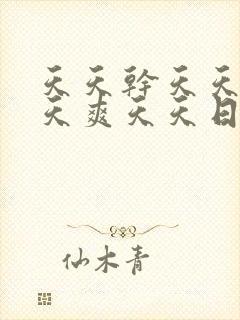 天天幹天天
天爽天天日
仙木青